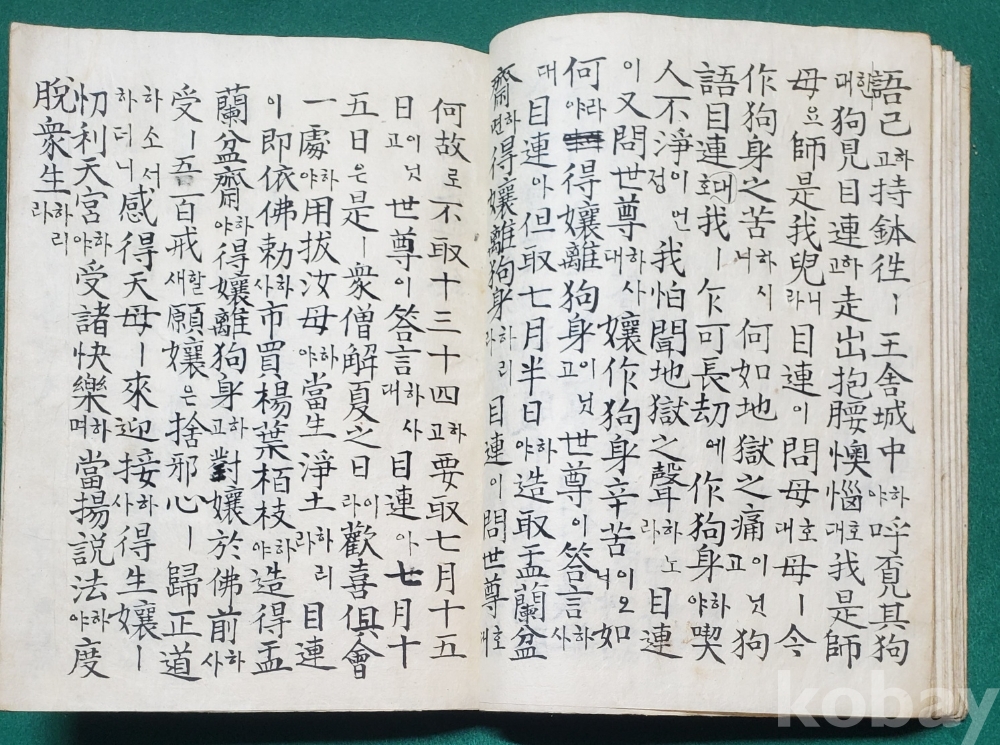 語己하고持鉢徃ㅣ王舍城中하야呼覔其狗
한대狗見目連하고走出抱腰懊惱호대我是師
母요師是我兒니라目連이問母호대母ㅣ今
作狗身之苦하시니何如地獄之痛이닛고狗
語目連호대我ㅣ乍可長劫에作狗身하야喫
人不淨이언정我怕聞地獄之聲하노라目連
이又問世尊하사대孃作狗身辛苦이오니如
何라야得孃離狗身이닛고世尊이答言하사
대目連아但取七月半日하야造取盂蘭盆
齋하면得孃離狗身하리라目連이問世尊호대
何故로不取十三十四하고要取七月十五
日이닛고世尊이答言하사대目連아七月十
五日은是ㅣ衆僧解夏之日이라歡喜俱會
一處하야用拔汝母하야當生淨土하리라目連
이即依佛勅하사市買楊葉栢枝하야造得盂
蘭盆齋하야得孃離狗身하고對孃於佛前하사
受ㅣ五百戒할새願孃은捨邪心ㅣ歸正道
하소서하더니感得天母ㅣ來迎接하사得生孃ㅣ
忉利天宮하야受諸快樂하며當揚説法하야度
脫衆生하리라
kobay